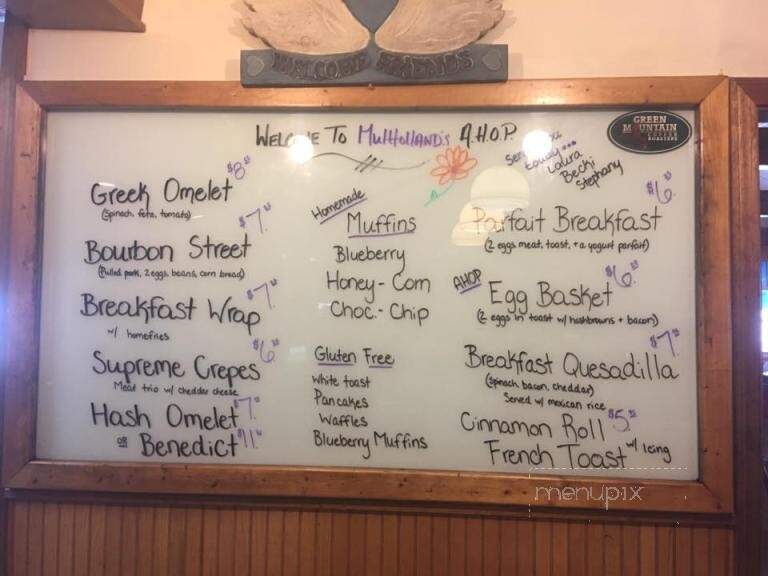 WELCOME FRIENDS
WELCOME TO MulHollAND's A.H.O.P.
GREEN
MOUNTAIN
COFFEE
ROASTERS
today...
Laura
Becki
Stephany
Greek Omelet $8
(Spinach, feta, tomato)
Bourbon Street $7
(Pulled pork, 2 eggs, beans, corn bread)
Breakfast Wrap $7
w/ homefries
Supreme Crepes $6
Meat trio w/ cheddar cheese
Hash Omelet $7
or Benedict $11
Homemade
Muffins
Blueberry
Honey-Corn
Choc.-Chip
Gluten Free
White toast
Pancakes
Waffles
Blueberry Muffins
Parfait Breakfast $6
(2 eggs meat, toast, + a yogurt parfait)
AHOP Egg Basket $6
(2 eggs in toast w/ hashbrowns + bacon)
Breakfast Quesadilla $7
(Spinach, bacon, cheddar)
Served w/ mexican rice
Cinnamon Roll $5
French Toast w/ Icing
menupix